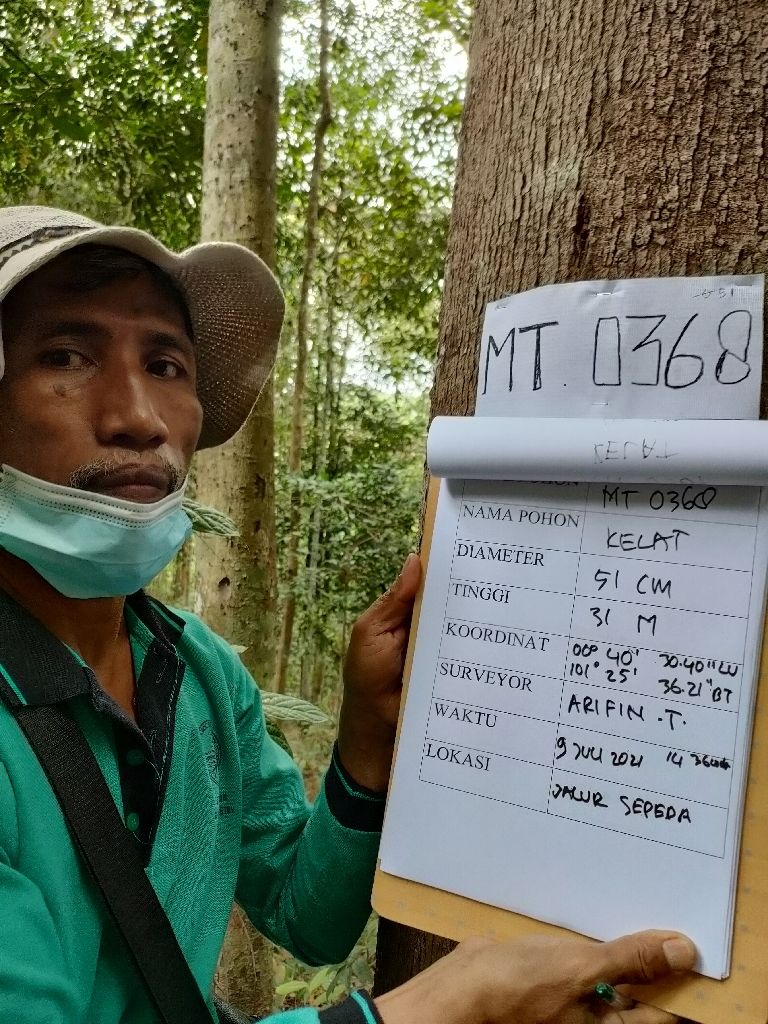 MT. 0368
KELAT
MT 0368
NAMA POHON KELAT
DIAMETER 51 CM
TINGGI 31 M
KOORDINAT 00° 40' 30.40" LU
101° 25' 36.21" BT
SURVEYOR ARIFIN .T.
WAKTU 9 JULI 2021 14
LOKASI JALUR SEPEDA